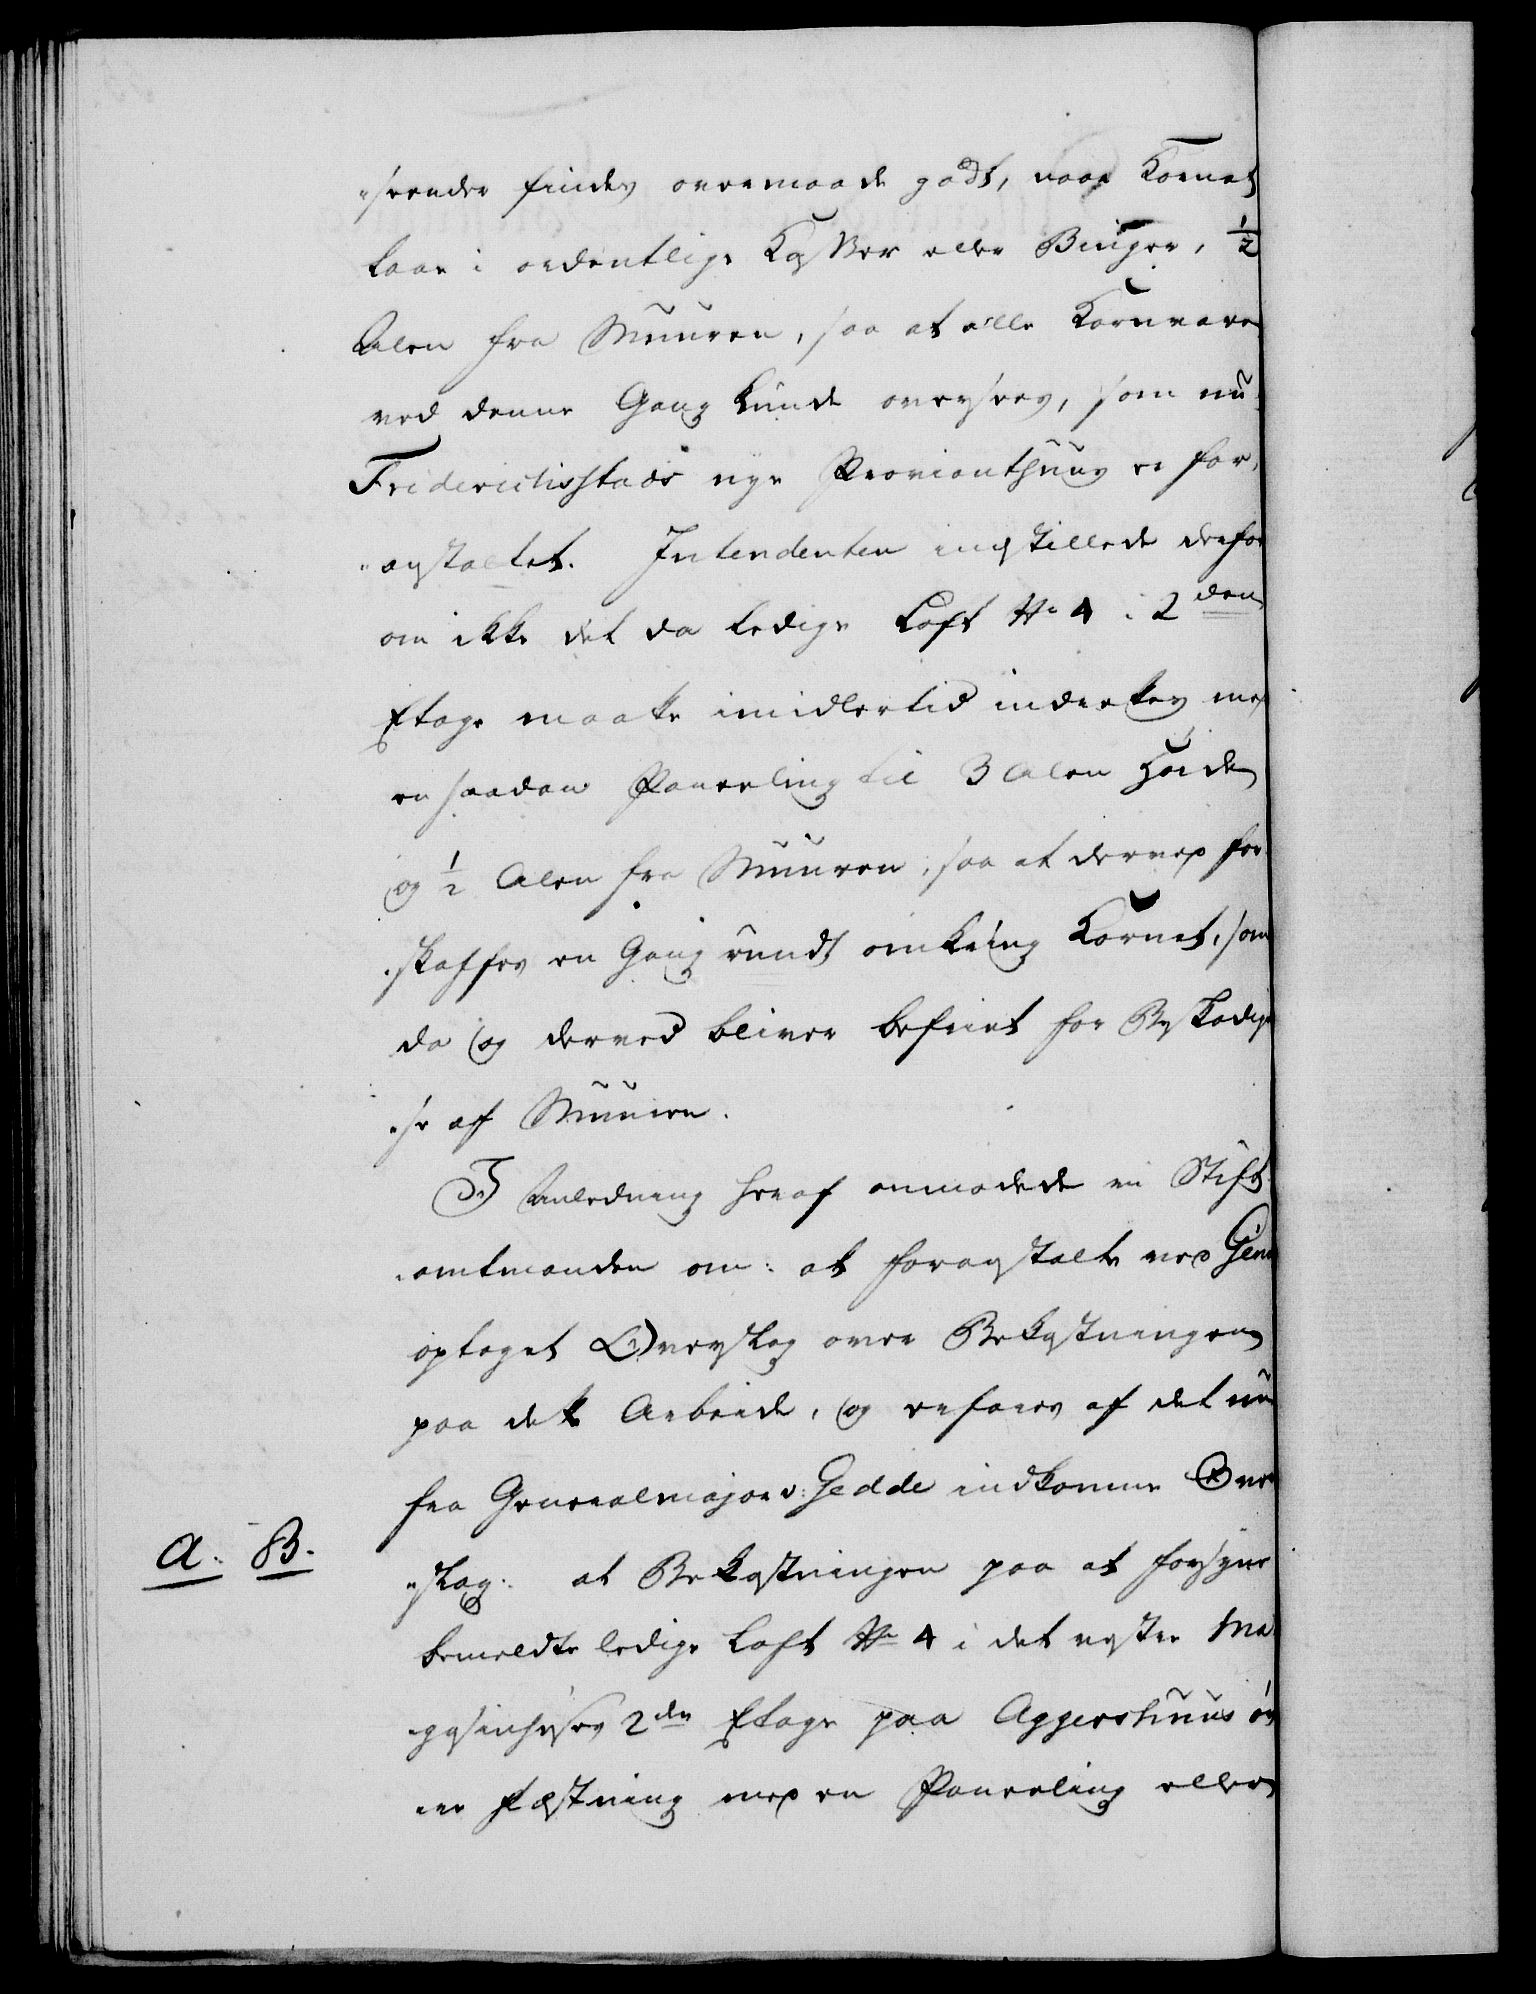 "seender findes overmaade godt, naar Kornet
laae i ordentlige Kasser eller Binger, 1/2
Alen fra Muuren, saa at alle Kornvare
ved denne Gang kunde oversees, som nu
Friderichsstads nye Provianthuus er for,
"anstaltet. Intendenten indstillede derfor
om ikke det da ledige Loft No 4 i 2den
Etage maatte imidlertid indrettes med
en saadan Paneeling til 3 Alen Høide
og 1/2 Alen fra Muuren, saa at derved for
"skaffes en Gang rundt omkring Kornet, som
da og derved bliver befriet for Beskadigel
"se af Muuren.
I Anledning heraf anmodede vi Stift
"amtmanden om: at foranstalte ved Gen
optaget Overslag over Bekostningen
paa dette Arbeide, og erfares af det nu
fra Generalmajor v: Gedde indkomne Over
"slag: at Bekostningen paa at forsyne
bemeldte ledige Loft No 4 i det vestre Ma
"gasinhuses 2den Etage paa Aggershuus
Fæstning med en Paneeling eller
A. B.